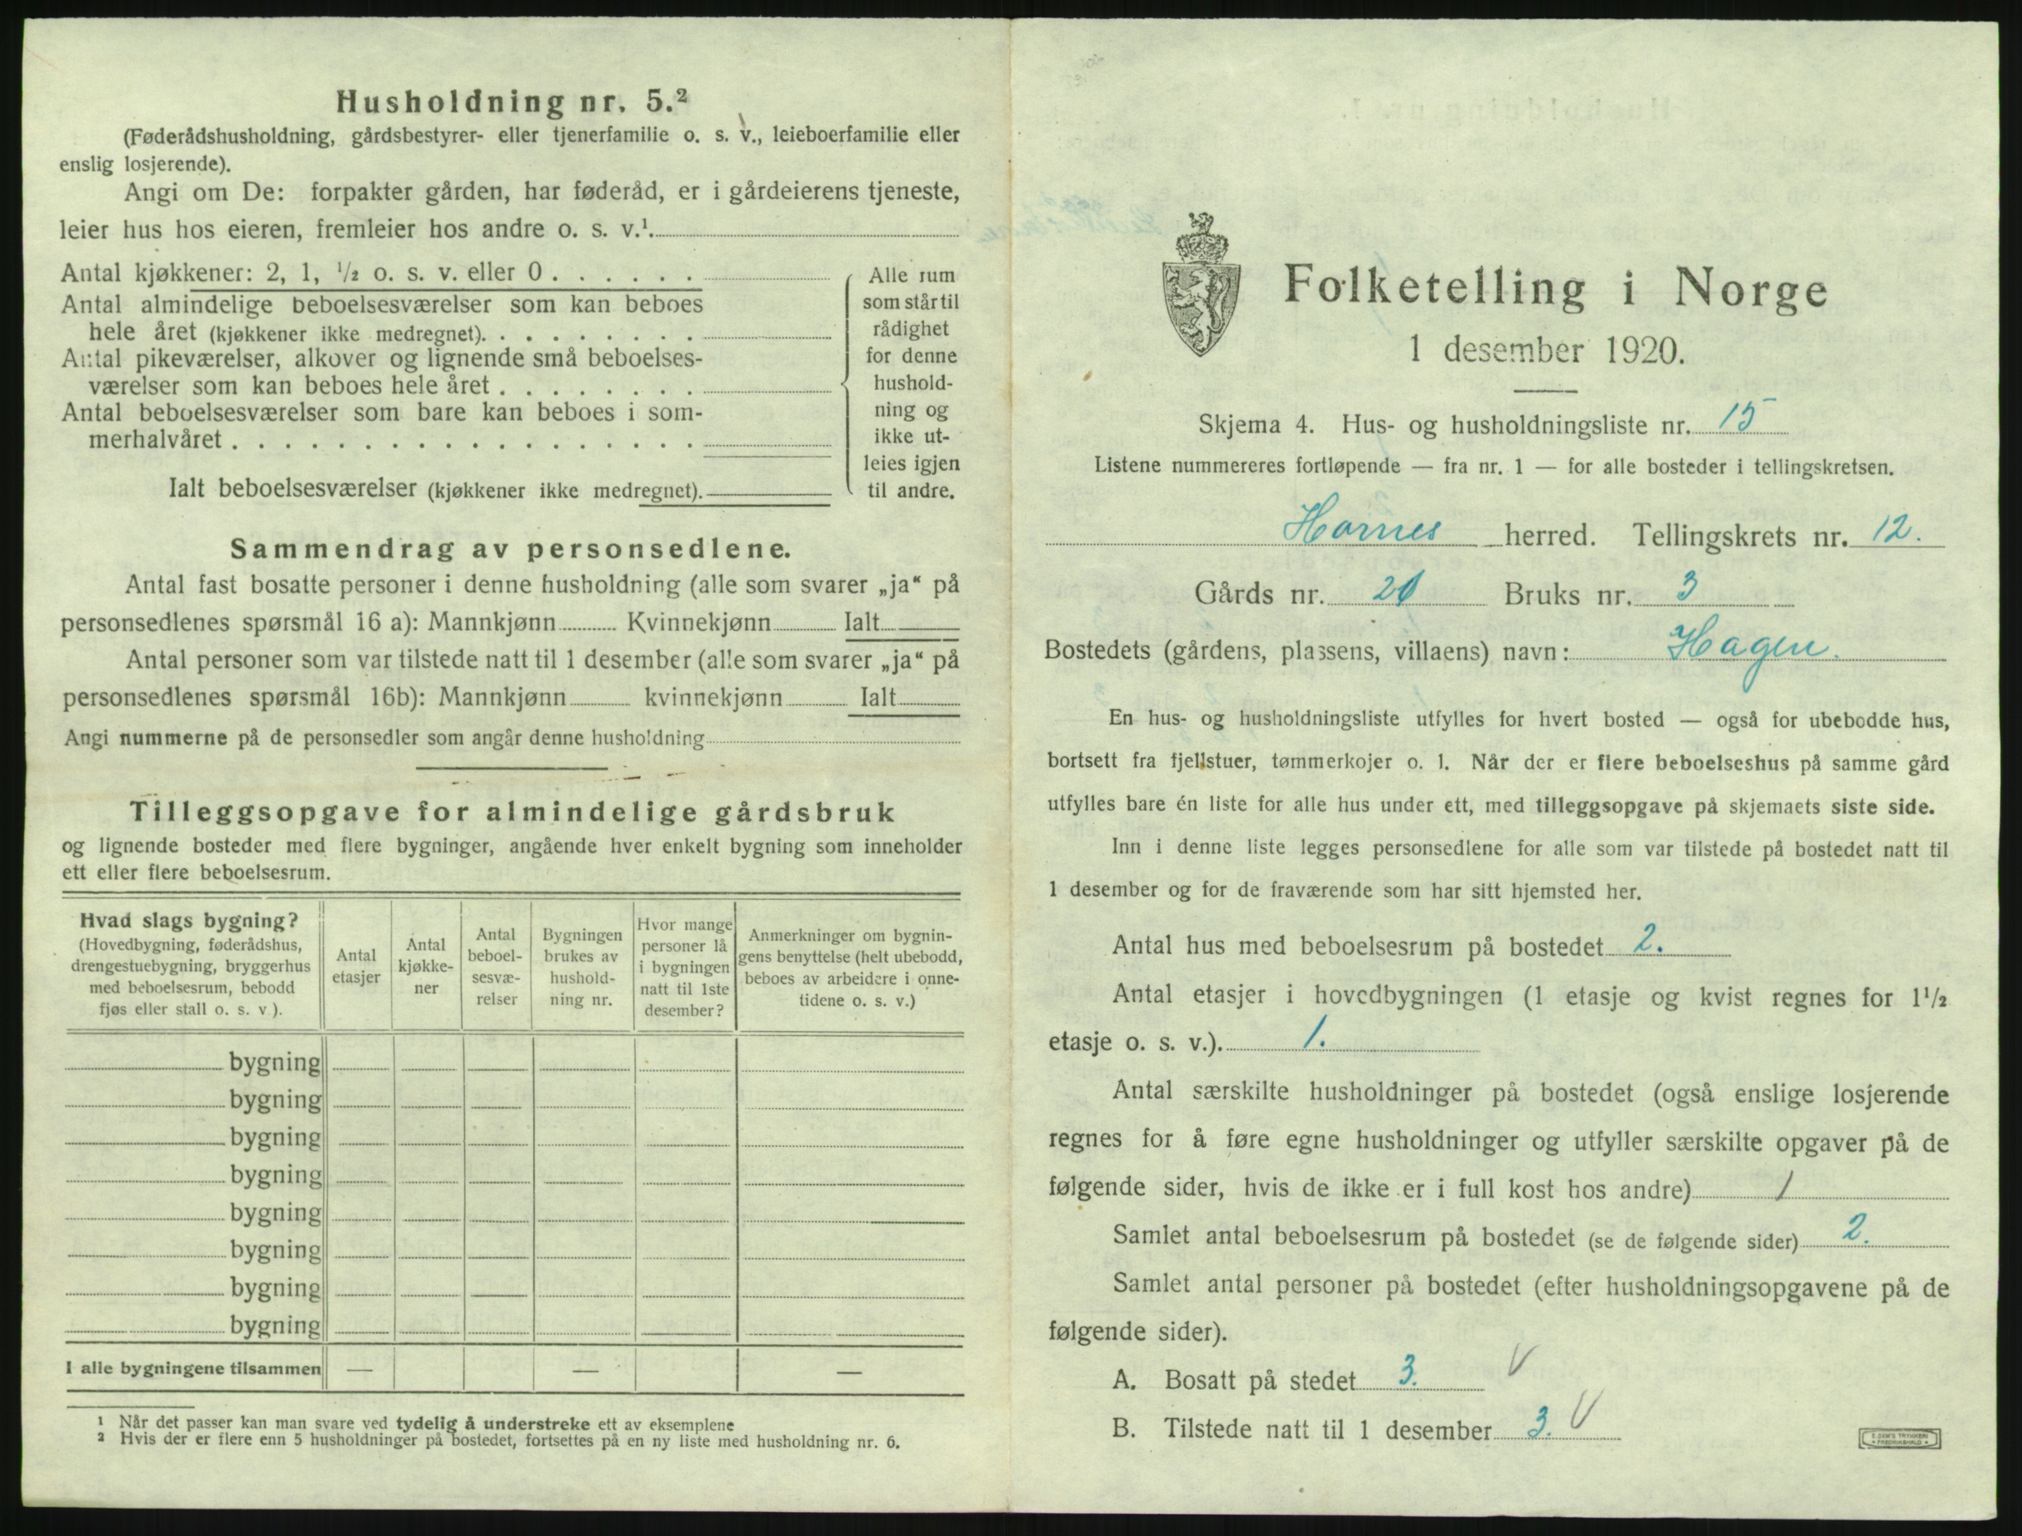 Husholdning nr. 5.²
(Føderådshusholdning, gårdsbestyrer- eller tjenerfamilie o. s. v., leieboerfamilie eller
enslig losjerende).
Angi om De: forpakter gården, har føderåd, er i gårdeierens tjeneste,
leier hus hos eieren, fremleier hos andre o. s. v.¹
Antal kjøkkener: 2, 1, ½ o. s. v. eller 0 . . . . . .
Antal almindelige beboelsesværelser som kan beboes
hele året (kjøkkener ikke medregnet). . . . . . . .
Antal pikeværelser, alkover og lignende små beboelses-
værelser som kan beboes hele året . . . . . . . .
Antal beboelsesværelser som bare kan beboes i som-
merhalvåret . . . . . . . . . . . . . . . . . .
Ialt beboelsesværelser (kjøkkener ikke medregnet).
Alle rum
som står til
rådighet
for denne
hushold-
ning og
ikke ut-
leies igjen
til andre.
Sammendrag av personsedlene.
Antal fast bosatte personer i denne husholdning (alle som svarer „ja“ på
personsedlenes spørsmål 16 a): Mannkjønn Kvinnekjønn Ialt
Antal personer som var tilstede natt til 1 desember (alle som svarer „ja“ på
personsedlenes spørsmål 16b): Mannkjønn kvinnekjønn Ialt
Angi nummerne på de personsedler som angår denne husholdning
Tilleggsopgave for almindelige gårdsbruk
og lignende bosteder med flere bygninger, angående hver enkelt bygning som inneholder
ett eller flere beboelsesrum.
Hvad slags bygning?
(Hovedbygning, føderådshus,
drengestuebygning, bryggerhus
med beboelsesrum, bebodd
fjøs eller stall o. s. v ).
Antal
etasjer
Antal
kjøkke-
ner
Antal
beboel-
sesvæ-
relser
Bygningen
brukes av
hushold-
ning nr.
Hvor mange
personer lå
i bygningen
natt til 1ste
desember?
Anmerkninger om bygnin-
gens benyttelse (helt ubebodd,
beboes av arbeidere i onne-
tidene o. s. v.)
bygning
bygning
bygning
bygning
bygning
bygning
bygning
bygning
I alle bygningene tilsammen — — —
¹ Når det passer kan man svare ved tydelig å understreke ett av eksemplene
² Hvis der er flere enn 5 husholdninger på bostedet, fortsettes på en ny liste med husholdning nr. 6.
Folketelling i Norge
1 desember 1920.
Skjema 4. Hus- og husholdningsliste nr. 15
Listene nummereres fortløpende — fra nr. 1 — for alle bosteder i tellingskretsen.
Hornnes herred. Tellingskrets nr. 12.
Gårds nr. 21 Bruks nr. 3
Bostedets (gårdens, plassens, villaens) navn: Hagen.
En hus- og husholdningsliste utfylles for hvert bosted — også for ubebodde hus,
bortsett fra fjellstuer, tømmerkojer o. l. Når der er flere beboelseshus på samme gård
utfylles bare én liste for alle hus under ett, med tilleggsopgave på skjemaets siste side.
Inn i denne liste legges personsedlene for alle som var tilstede på bostedet natt til
1 desember og for de fraværende som har sitt hjemsted her.
Antal hus med beboelsesrum på bostedet 2.
Antal etasjer i hovedbygningen (1 etasje og kvist regnes for 1½
etasje o. s. v.). 1.
Antal særskilte husholdninger på bostedet (også enslige losjerende
regnes for å føre egne husholdninger og utfyller særskilte opgaver på de
følgende sider, hvis de ikke er i full kost hos andre) 1
Samlet antal beboelsesrum på bostedet (se de følgende sider) 2.
Samlet antal personer på bostedet (efter husholdningsopgavene på de
følgende sider).
A. Bosatt på stedet 3. V
B. Tilstede natt til 1 desember 3. V